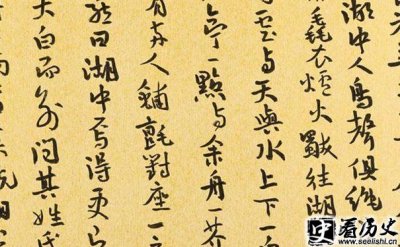 湖中人鳥聲俱絕
毳衣爐火獨往湖
与天與水上下一
亭一點与余舟芥
有兩人鋪氈對座一
曰湖中焉得更
大白而別问其姓氏
看历史
www.seelishi.cn